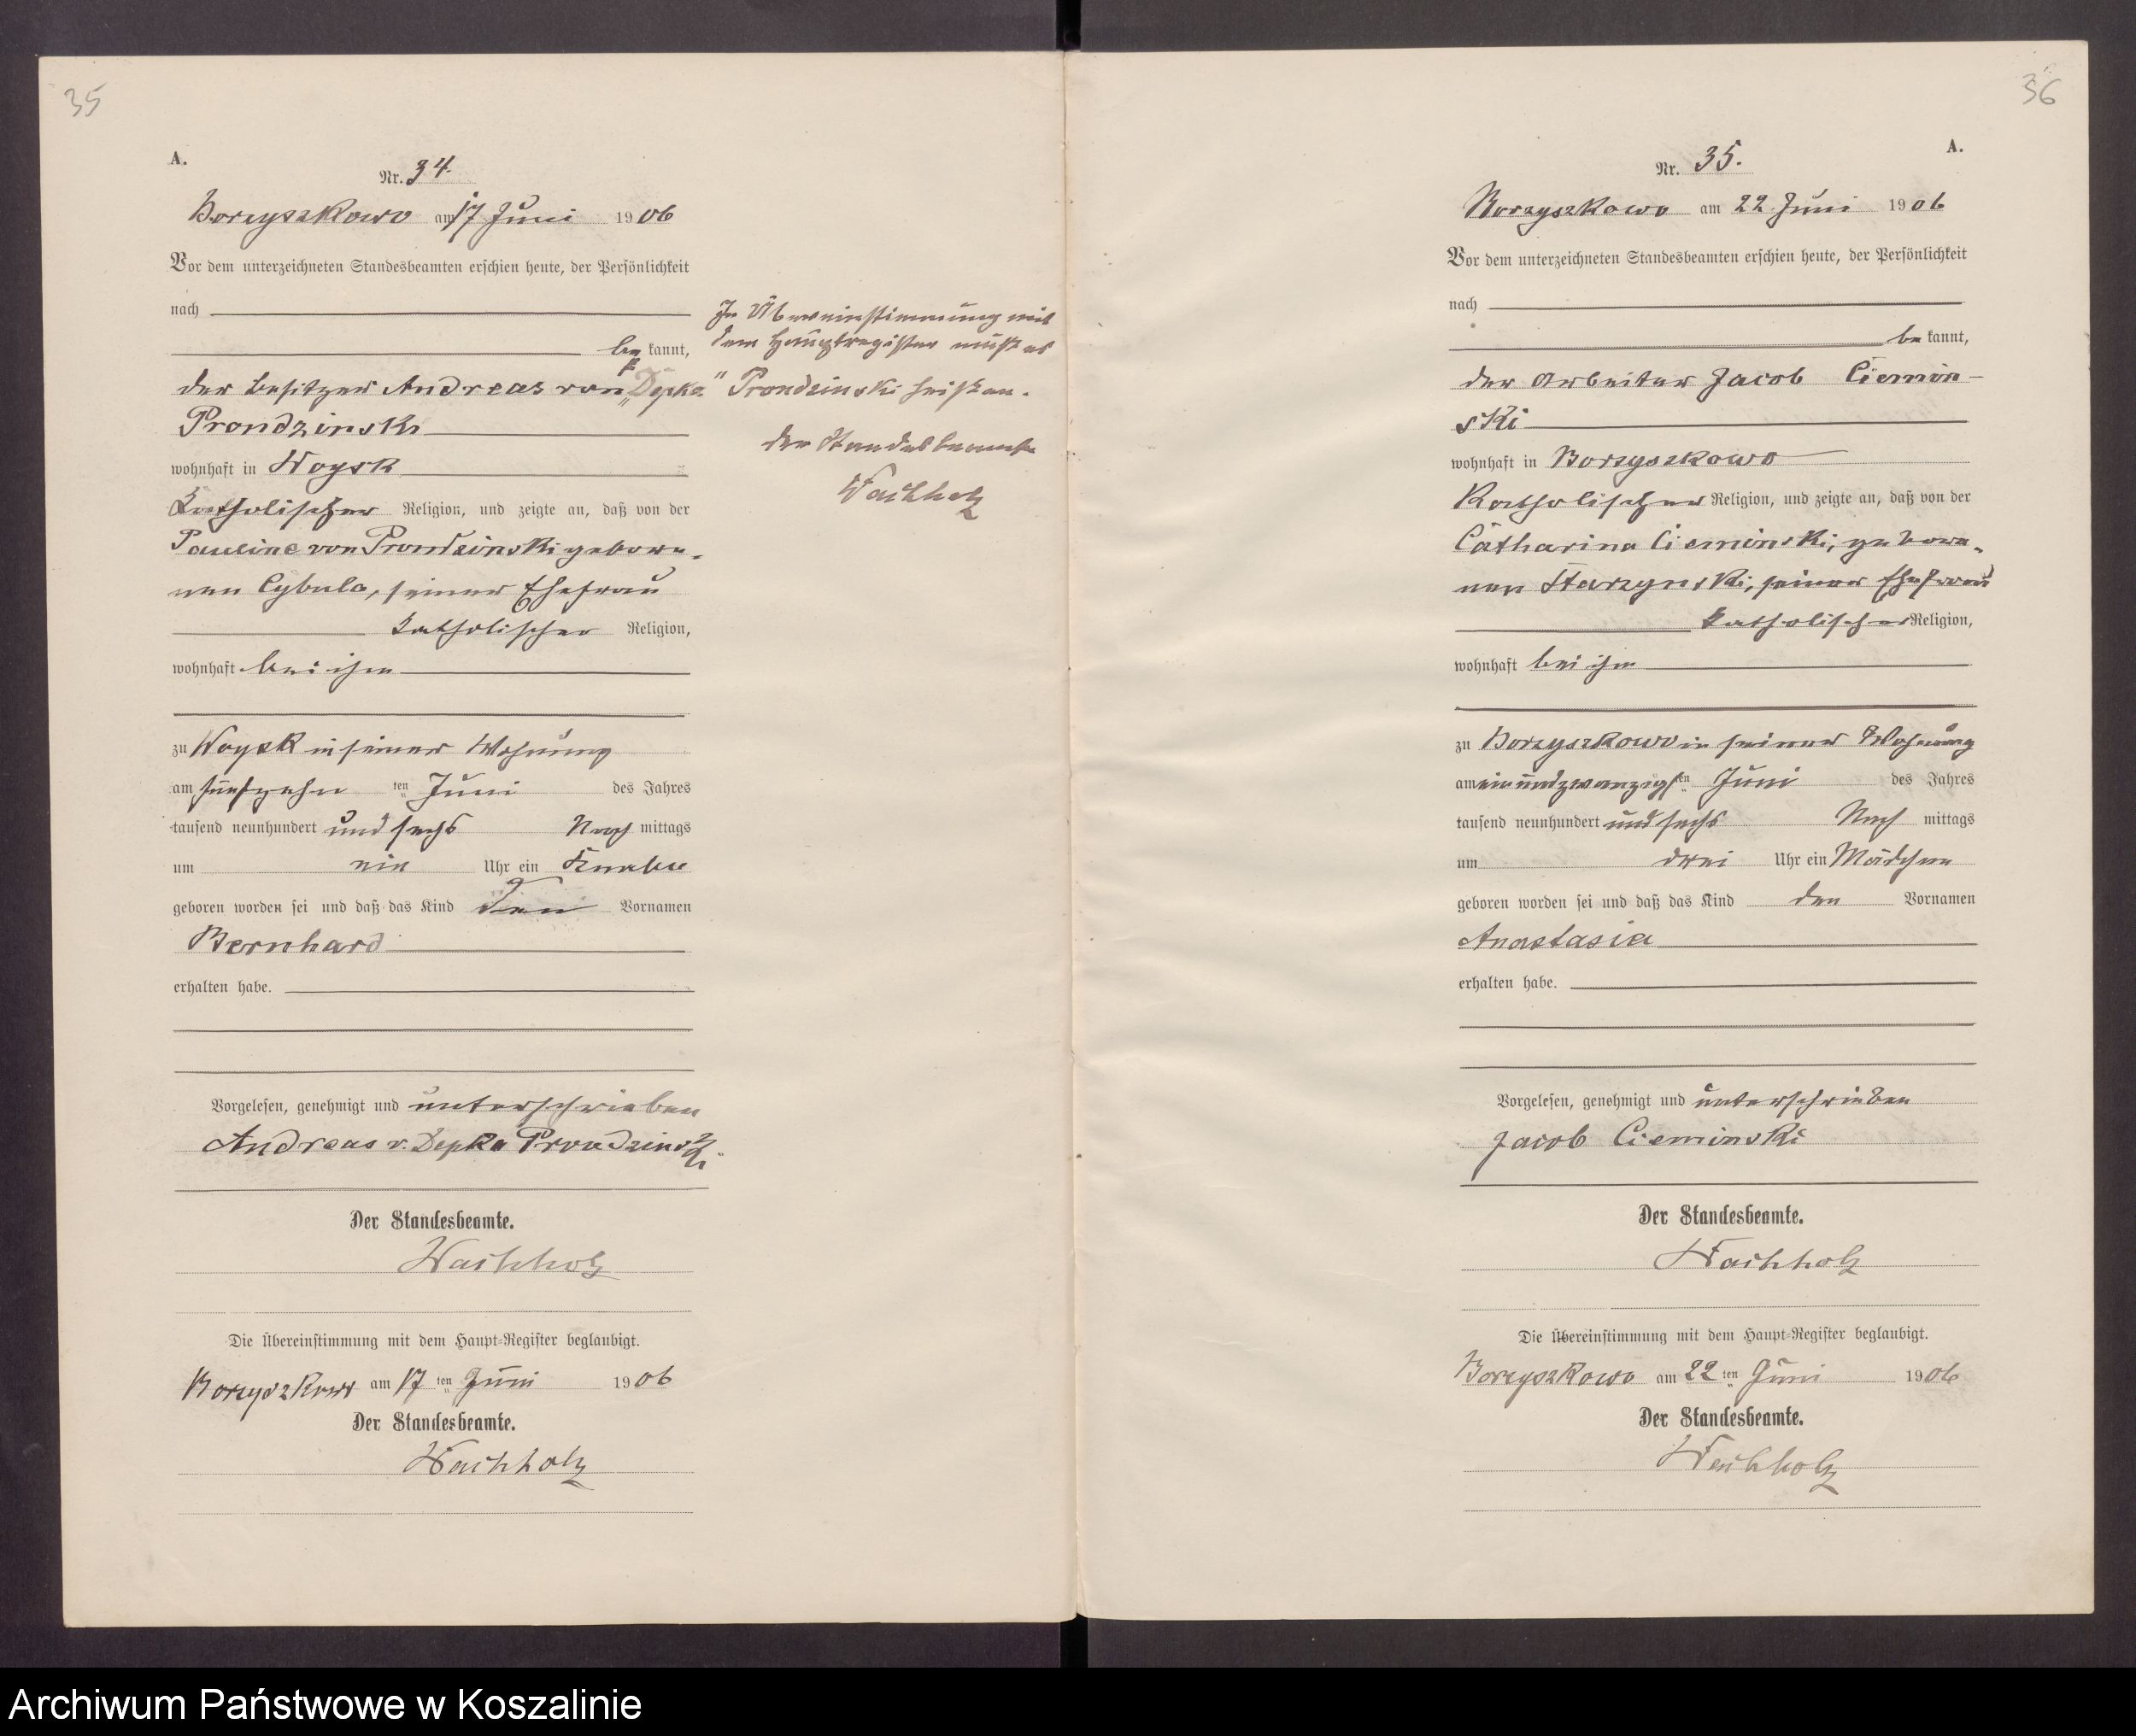 35
A.
Nr. 34.
Borzyszkowo am 17 Juni 1906
Vor dem unterzeichneten Standesbeamten erschien heute, der Persönlichkeit
nach
be kannt,
der Besitzer Andreas von „Depka"
Prondzinski
wohnhaft in Woysk
katholischer Religion, und zeigte an, daß von der
Pauline von Prondzinski gebore-
nen Cybula, seiner Ehefrau
katholischer Religion,
wohnhaft bei ihm
zu Woysk in seiner Wohnung
am fünfzehn ten Juni des Jahres
tausend neunhundert und sechs Nach mittags
um ein Uhr ein Knabe
geboren worden sei und daß das Kind den Vornamen
Bernhard
erhalten habe.
Vorgelesen, genehmigt und unterschrieben
Andreas v. Depka Prondzinski.
Der Standesbeamte.
Wachholz
Die Übereinstimmung mit dem Haupt-Register beglaubigt.
Borzyszkowo am 17 ten Juni 1906
Der Standesbeamte.
Wachholz
In Übereinstimmung mit
dem Hauptregister muß es
Prondzinski heißen.
Der Standesbeamte
Wachholz
36
A.
Nr. 35.
Borzyszkowo am 22 Juni 1906
Vor dem unterzeichneten Standesbeamten erschien heute, der Persönlichkeit
nach
be kannt,
der Arbeiter Jacob Ciemin-
ski
wohnhaft in Borzyszkowo
Katholischer Religion, und zeigte an, daß von der
Catharina Cieminski, gebore-
nen Starzynski, seiner Ehefrau
katholischer Religion,
wohnhaft bei ihm
zu Borzyszkowo in seiner Wohnung
am einundzwanzigsten Juni des Jahres
tausend neunhundert und sechs Nach mittags
um drei Uhr ein Mädchen
geboren worden sei und daß das Kind den Vornamen
Anastasia
erhalten habe.
Vorgelesen, genehmigt und unterschrieben
Jacob Cieminski
Der Standesbeamte.
Wachholz
Die Übereinstimmung mit dem Haupt-Register beglaubigt.
Borzyszkowo am 22 ten Juni 1906
Der Standesbeamte.
Wachholz
Archiwum Państwowe w Koszalinie